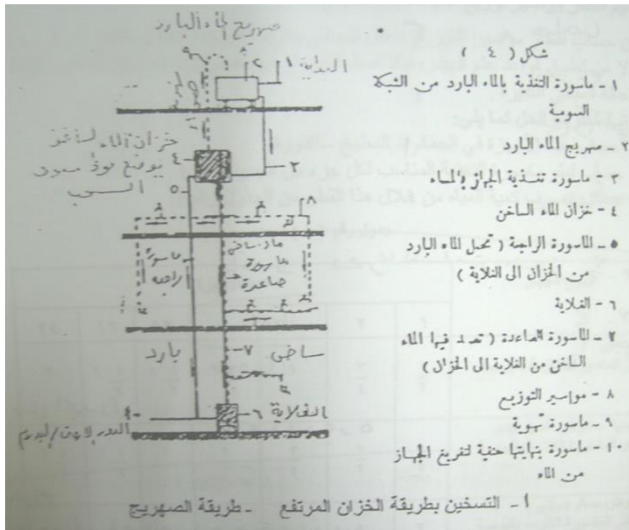 صهريج الماء البارد
البداية
خزان الماء الساخن
يوضع فوق
ماء ساخن
ماسورة
صاعدة
ماسورة
راجعة
ساخن
بارد
الغلاية
شكل ( ٤ )
١ - ماسورة التغذية بالماء البارد من الشبكة
العمومية
٢ - صهريج الماء البارد
٣ - ماسورة تغذية الجهاز بالماء
٤ - خزان الماء الساخن
٥ - الماسورة الراجعة ( تحمل الماء البارد
من الخزان الى الغلاية )
٦ - الغلاية
٧ - الماسورة الصاعدة ( تصعد فيها الماء
الساخن من الغلاية الى الخزان )
٨ - مواسير التوزيع
٩ - ماسورة تهوية
١٠ - ماسورة بنهايتها حنفية لتفريغ الجهاز
من الماء
أ- التسخين بطريقة الخزان المرتفع - طريقة الصهريج